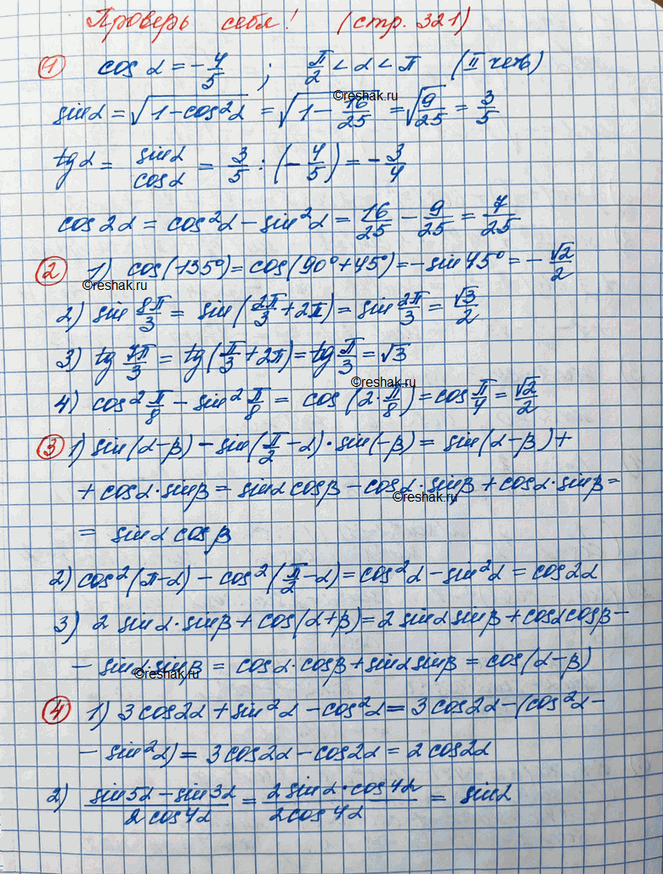 Проверь себя! (стр. 321)
① cos α = -4/5 ; π/2 < α < π (II четв)
©reshak.ru
sin α = √(1-cos²α) = √(1 - 16/25) = √(9/25) = 3/5
tg α = sin α/cos α = 3/5 : (-4/5) = -3/4
cos 2α = cos²α - sin²α = 16/25 - 9/25 = 7/25
② 1) cos(-135°) = cos(90°+45°) = -sin 45° = -√2/2
©reshak.ru
2) sin 8π/3 = sin(2π/3 + 2π) = sin 2π/3 = √3/2
3) tg 7π/3 = tg(π/3 + 2π) = tg π/3 = √3
©reshak.ru
4) cos² π/8 - sin² π/8 = cos(2·π/8) = cos π/4 = √2/2
③ 1) sin(α-β) - sin(π/2 - α)·sin(-β) = sin(α-β) +
+ cos α·sin β = sin α cos β - cos α·sin β + cos α·sin β =
©reshak.ru
= sin α cos β
2) cos²(π-α) - cos²(π/2 - α) = cos²α - sin²α = cos 2α
3) 2 sin α·sin β + cos(α+β) = 2 sin α sin β + cos α cos β -
- sin α·sin β = cos α·cos β + sin α sin β = cos(α-β)
©reshak.ru
④ 1) 3 cos 2α + sin²α - cos²α = 3 cos 2α - (cos²α -
- sin²α) = 3 cos 2α - cos 2α = 2 cos 2α
2) (sin 5α - sin 3α)/(2 cos 4α) = (2 sin α·cos 4α)/(2 cos 4α) = sin α